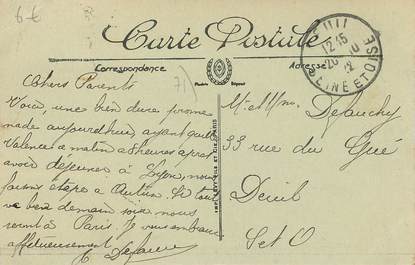 6€
Carte Postale
Correspondance
Adresse
12 15
20
12
SEINE ET OISE
71
Chers Parents
Voici, une bien dure prome
nade aujourd'hui, ayant quitté
Valence ce matin à 8 heures, après
avoir déjeuner à Lyon, nous
faisons étape à Autun. Si tout
va bien demain soir nous
seront à Paris. Je vous embrasse
affectueusement
M. et Mme Delauchy
33 rue du Gué
Deuil
S et O